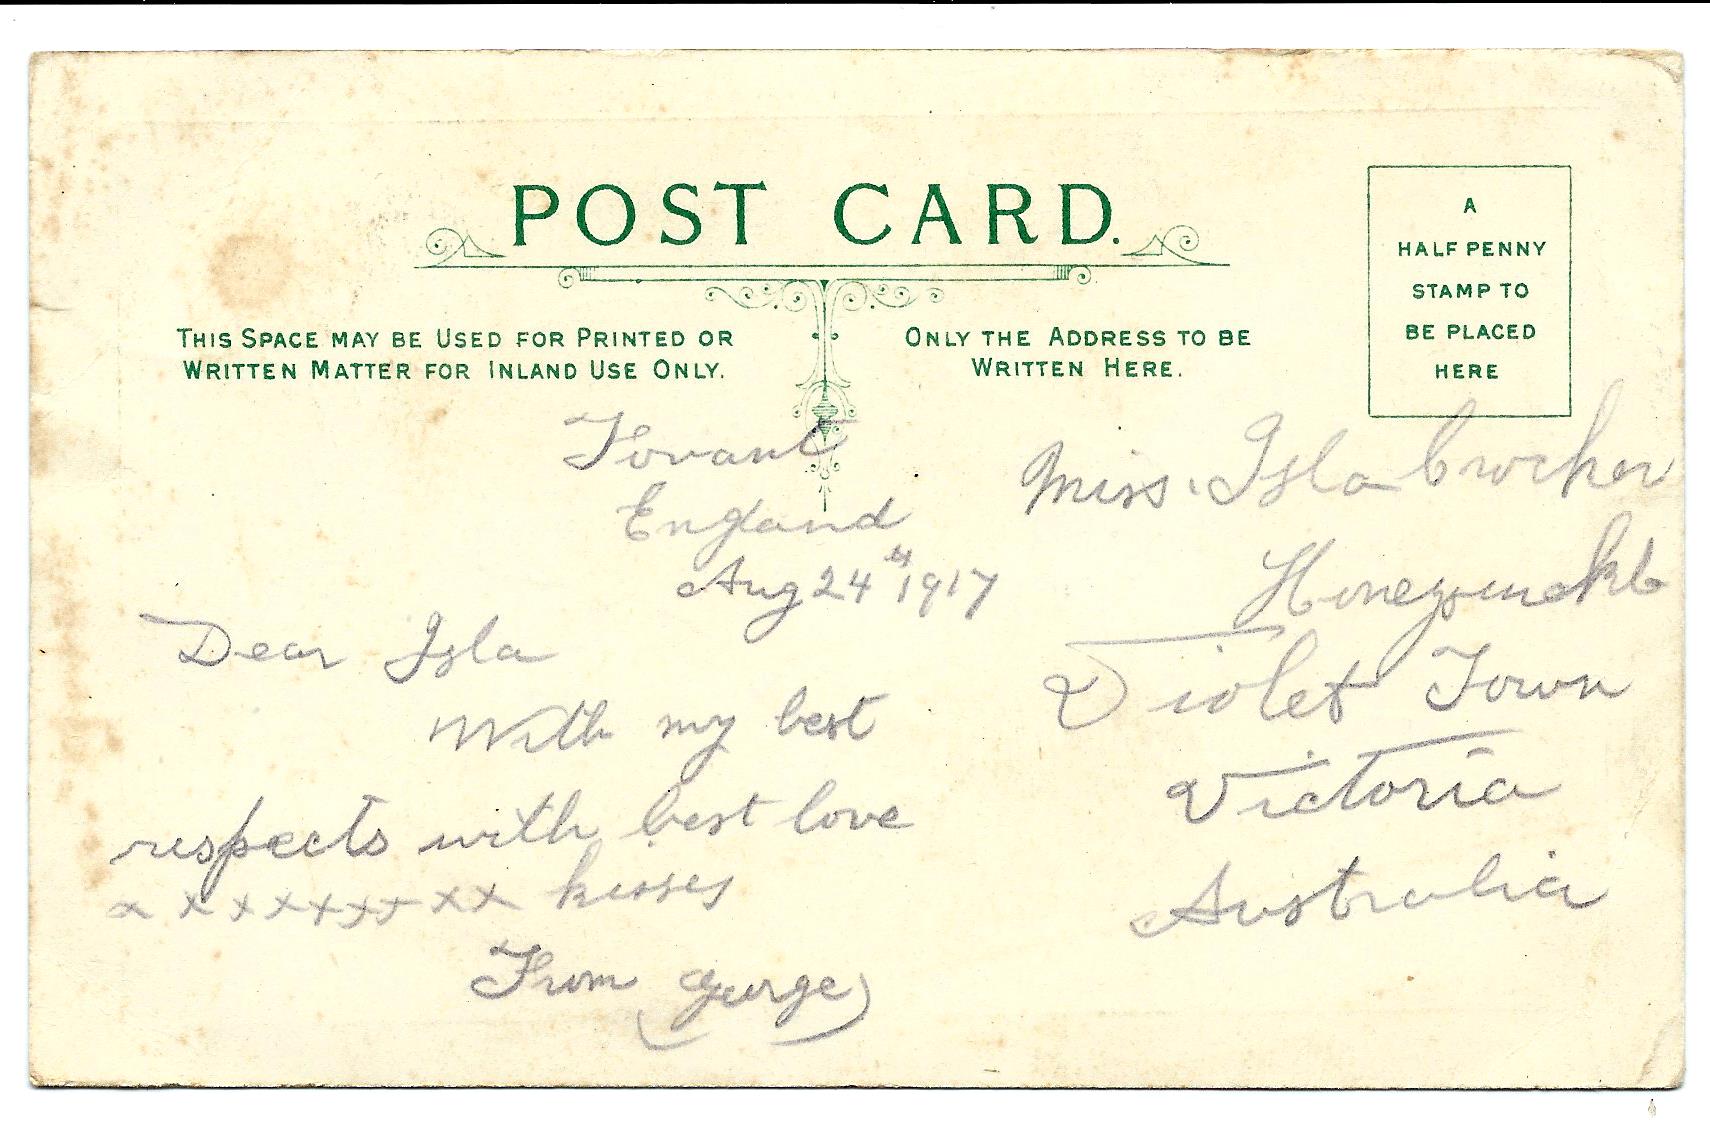 POST CARD.
THIS SPACE MAY BE USED FOR PRINTED OR
WRITTEN MATTER FOR INLAND USE ONLY.
ONLY THE ADDRESS TO BE
WRITTEN HERE.
A
HALF PENNY
STAMP TO
BE PLACED
HERE
Fovant
England
Aug 24th 1917
Dear Isla
With my best
respects with best love
x x x x x x x x x kisses
From George
Miss. Isla Crocker
Violet Town
Victoria
Australia